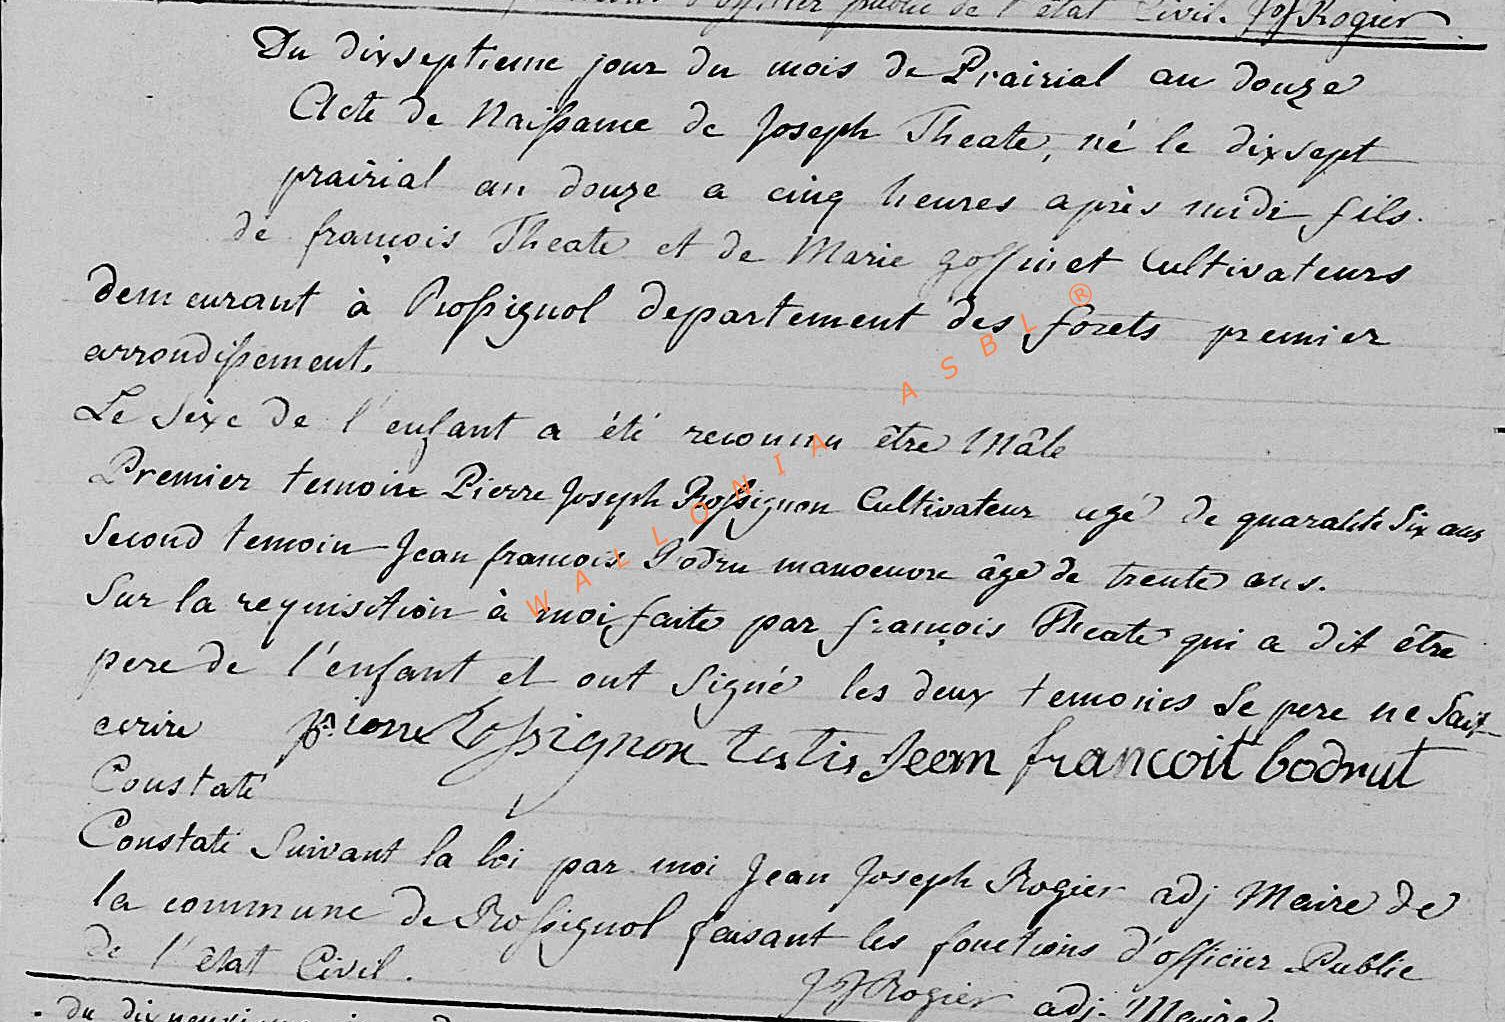 public de l'état Civil. JJ Rogier
Du dixseptieme jour du mois de Prairial an douze
Acte de Naissance de Joseph Theate, né le dixsept
prairial an douze a cinq heures après midi fils
de françois Theate et de Marie Goffinet Cultivateurs
demeurant à Rossignol departement des forets premier
arrondissement.
Le Sexe de l'enfant a été reconnu être Mâle
Premier temoin Pierre Joseph Rossignon Cultivateur agé de quarante Six ans
Second temoin Jean françois Bodru manoeuvre âgé de trente ans.
Sur la requisition à moi faite par françois Theate qui a dit être
pere de l'enfant et ont Signé les deux temoins Le pere ne Sait
ecrire pierre Rossignon testis Jean francoit bodrut
Constaté
Constaté Suivant la loi par moi Jean Joseph Rogier adj Maire de
la commune de Rossignol faisant les fonctions d'officier Public
de l'état Civil. JJ Rogier adj. Maire
du dixneuvi
WALLONIA ASBL ®